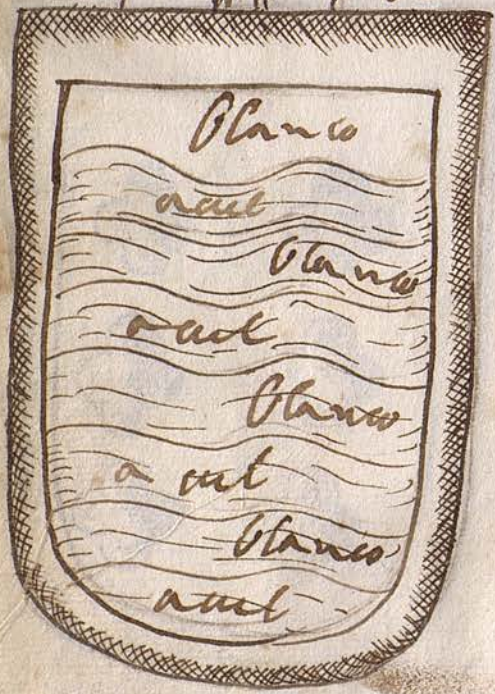 blanco
acul
blanco
acul
blanco
a cul
blanco
acul